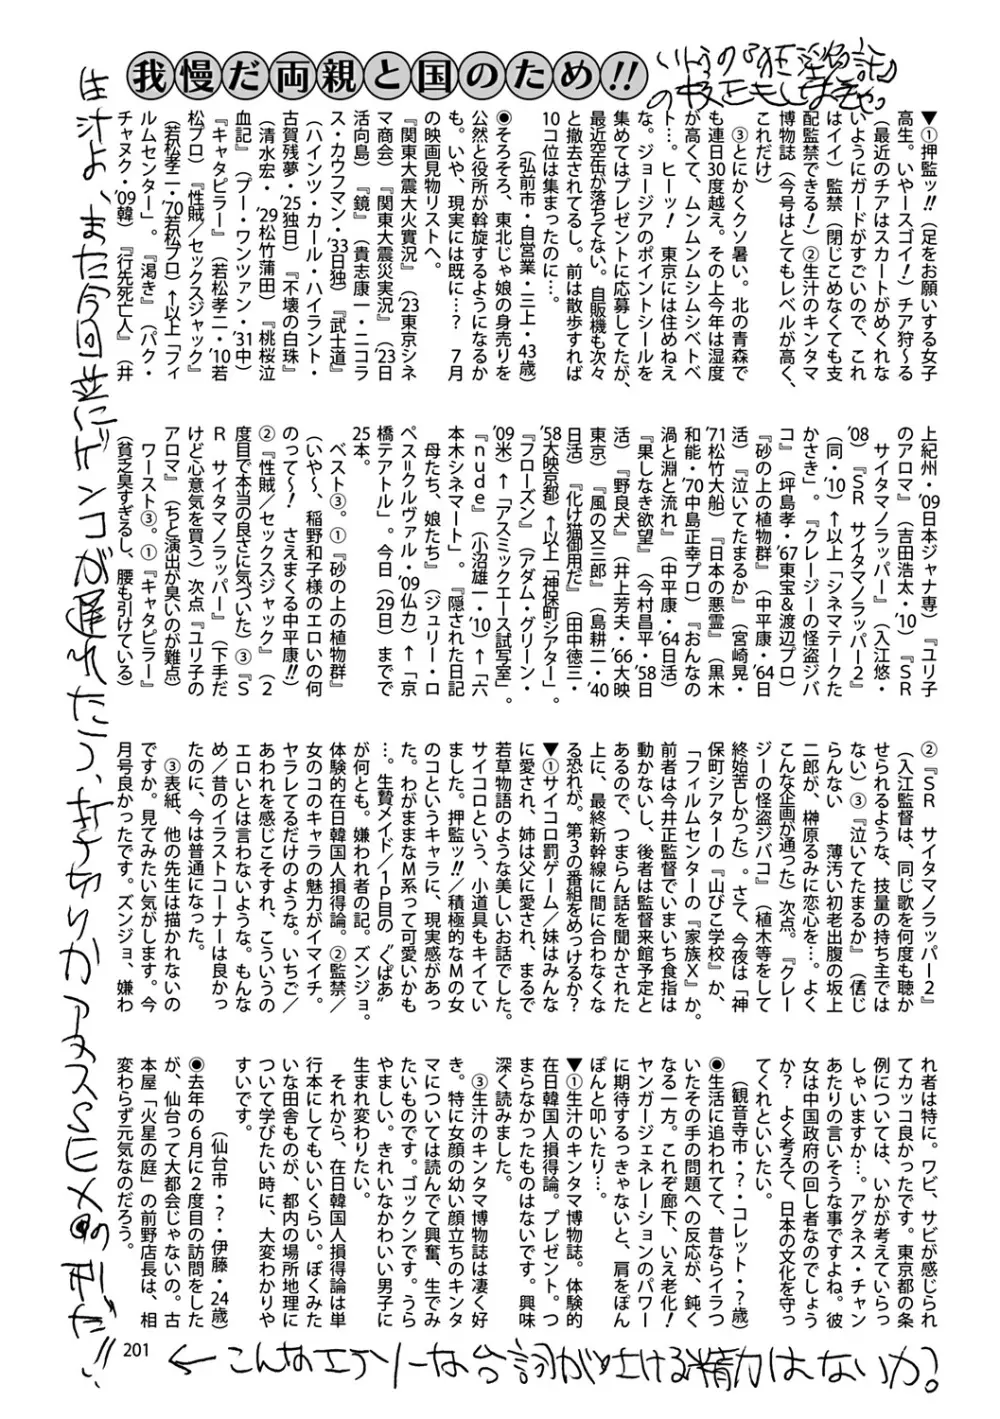 我慢だ両親と国のため!!
▼①押監ッ!!（足をお願いする女子
高生。いやースゴイ！）チア狩〜る
（最近のチアはスカートがめくれな
いようにガードがすごいので、これ
はイイ）監禁（閉じこめなくても支
配監禁できる！）②生汁のキンタマ
博物誌（今号はとてもレベルが高く、
これだけ）
③とにかくクソ暑い。北の青森で
も連日30度越え。その上今年は湿度
が高くて、ムンムンムシムシベトベ
ト…。ヒーッ！　東京には住めねえ
な。ジョージアのポイントシールを
集めてはプレゼントに応募してたが、
最近空缶が落ちてない。自販機も次々
と撤去されてるし。前は散歩すれば
10コ位は集まったのに…。
（弘前市・自営業・三上・43歳）
◉そろそろ、東北じゃ娘の身売りを
公然と役所が斡旋するようになるか
も。いや、現実には既に…？　7月
の映画見物リストへ。
『関東大震大火實況』（'23東京シネ
マ商会）『関東大震災実況』（'23日
活向島）『鏡』（貴志康一・ニコラ
ス・カウフマン・'33日独）『武士道』
（ハインツ・カール・ハイラント・
古賀残夢・'25独日）『不壊の白珠』
（清水宏・'29松竹蒲田）『桃桜泣
血記』（プー・ワンツァン・'31中）
『キャタピラー』（若松孝二・'10若
松プロ）『性賊／セックスジャック』
（若松孝二・'70若松プロ）↑以上「フィ
ルムセンター」。『渇き』（パク・
チャヌク・'09韓）『行先死亡人』（井
上紀州・'09日本ジャナ専）『ユリ子
のアロマ』（吉田浩太・'10）『SR
サイタマノラッパー』（入江悠・
'08）『SR　サイタマノラッパー2』
（同・'10）↑以上「シネマテークた
かさき」。『クレージーの怪盗ジバ
コ』（坪島孝・'67東宝＆渡辺プロ）
『砂の上の植物群』（中平康・'64日
活）『泣いてたまるか』（宮崎晃・
'71松竹大船）『日本の悪霊』（黒木
和能・'70中島正幸プロ）『おんなの
渦と淵と流れ』（中平康・'64日活）
『果しなき欲望』（今村昌平・'58日
活）『野良犬』（井上芳夫・'66大映
東京）『風の又三郎』（島耕二・'40
日活）『化け猫御用だ』（田中徳三・
'58大映京都）↑以上「神保町シアター」。
『フローズン』（アダム・グリーン・
'09米）↑「アスミックエース試写室」。
『nude』（小沼雄一・'10）↑「六
本木シネマート」。『隠された日記
母たち、娘たち』（ジュリー・ロ
ペス＝クルヴァル・'09仏カ）↑「京
橋テアトル」。今日（29日）までで
25本。
ベスト③。①『砂の上の植物群』
（いや〜、稲野和子様のエロいの何
のって〜！　さえまくる中平康!!）
②『性賊／セックスジャック』（2
度目で本当の良さに気づいた）③『S
R　サイタマノラッパー』（下手だ
けど心意気を買う）次点『ユリ子の
アロマ』（ちと演出が臭いのが難点）
ワースト③。①『キャタピラー』
（貧乏臭すぎるし、腰も引けている）
②『SR　サイタマノラッパー2』
（入江監督は、同じ歌を何度も聴か
せられるような、技量の持ち主では
ない）③『泣いてたまるか』（信じ
らんない　薄汚い初老出腹の坂上
二郎が、榊原るみに恋心を…。よく
こんな企画が通った）次点。『クレー
ジーの怪盗ジバコ』（植木等をして
終始苦しかった）。さて、今夜は「神
保町シアターの『山びこ学校』か、
「フィルムセンターの『家族X』か。
前者は今井正監督でいまいち食指は
動かないし、後者は監督来館予定と
あるので、つまらん話を聞かされた
上に、最終新幹線に間に合わなくな
る恐れが。第3の番組をめっけるか？
▼①サイコロ罰ゲーム／妹はみんな
に愛され、姉は父に愛され、まるで
若草物語のような美しいお話でした。
サイコロという、小道具もキイてい
ました。押監ッ!!／積極的なMの女
のコというキャラに、現実感があっ
た。わがままなM系って可愛いかも
…。生贄メイド／1P目の〝ぱあ〟
が何とも。嫌われ者の記。ズンジョ。
体験的在日韓国人損得論。②監禁／
女のコのキャラの魅力がイマイチ。
ヤラしてるだけのような。いちご／
あわれを感じこそすれ、こういうの
エロいとは言わないような。もんな
め／昔のイラストコーナーは良かっ
たのに、今は普通になった。
③表紙、他の先生は描かれないの
ですか。見てみたい気がします。今
月号良かったです。ズンジョ、嫌わ
れ者は特に。ワビ、サビが感じられ
てカッコ良かったです。東京都の条
例については、いかが考えていらっ
しゃいますか…。アグネス・チャン
あたりの言いそうな事ですよね。彼
女は中国政府の回し者なのでしょう
か？　よく考えて、日本の文化を守っ
てくれといいたい。
（観音寺市・？・コレット・？歳）
◉生活に追われてて、昔ならイラつ
いたその手の問題への反応が、鈍く
なる一方。これぞ廊下、いえ老化！
ヤンガージェネレーションのパワー
に期待するっきゃないと、肩をぽん
ぽんと叩いたり…。
▼①生汁のキンタマ博物誌。体験的
在日韓国人損得論。プレゼント。つ
まらなかったものはないです。興味
深く読みました。
③生汁のキンタマ博物誌は凄く好
き。特に女顔の幼い顔立ちのキンタ
マについては読んでて興奮、生でみ
たいものです。ゴックンです。うら
やましい。きれいなかわいい男子に
生まれ変わりたい。
それから、在日韓国人損得論は単
行本にしてもいいくらい。ぼくみた
いな田舎ものが、都内の場所地理に
ついて学びたい時に、大変わかりや
すいです。
（仙台市・？・伊藤・24歳）
◉去年の6月に2度目の訪問をした
が、仙台って大都会じゃないの。古
本屋「火星の庭」の前野店長は、相
変わらず元気なのだろう。
201
←こんなエラソーな台詞が吐ける精力はないか？